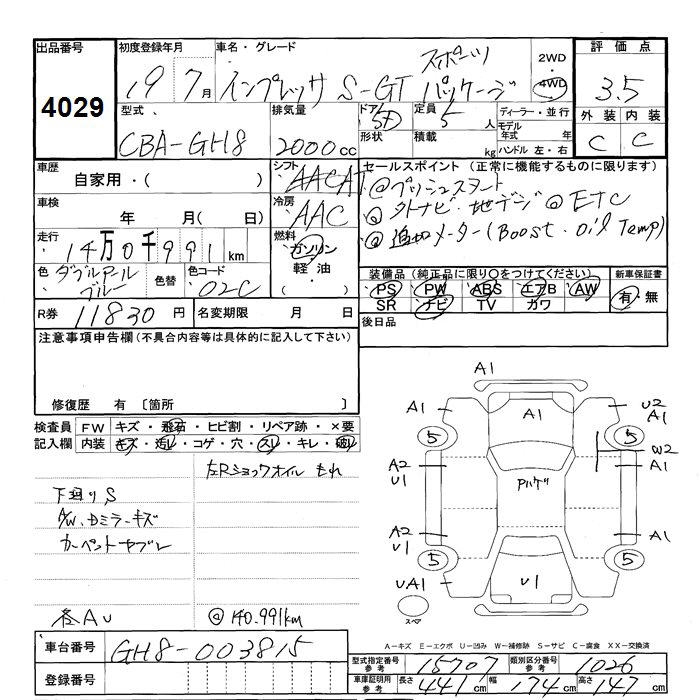 出品番号 初度登録年月 車名・グレード 評価点
4029 19 7月 インプレッサ S-GT スポーツ パッケージ 2WD 4WD 3.5
型式 排気量 ドア 定員 ディーラー・並行 外装 内装
CBA-GH8 2000cc 5D 形状 5人 積載 kg モデル年式 年 ハンドル 左・右 C C
車歴 シフト セールスポイント (正常に機能するものに限ります)
自家用・( ) AACAT @プッシュスタート
車検 冷房 @外ナビ・地デジ @ETC
年 月(日) AAC @追加メーター(Boost・oil Temp)
走行 燃料
14万0千991km ガソリン
色 色替 色コード 軽油 装備品(純正品に限り〇をつけてください) 新車保証書
ダブルアールブルー 02C ・( ) PS PW ABS エアB AW 有・無
R券 11830円 名変期限 月 日 SR ナビ TV カワ
注意事項申告欄(不具合内容等は具体的に記入して下さい) 後日品
修復歴 有 〔箇所 〕
検査員 FW キズ・飛石・ヒビ割・リペア跡・×要
記入欄 内装 キズ・汚レ・コゲ・穴・スレ・キレ・破レ
左Rショックオイル もれ
下廻りS
A/W、ドミラーキズ
カーペットヤブレ
各AU @140.991km
A1
A1 A1 U2 A1
5 5
W2
A2 U1 Pハゲ A1
A2 U1 A1
5 5
UA1 U1 A1
スペア
A-キズ E-エクボ U-凹み W-補修跡 S-サビ C-腐食 XX-交換済
車台番号 GH8-003815
登録番号
型式指定番号 参考 15707 類別区分番号 参考 1026
車庫証明用 参考 長さ 441cm 幅 174cm 高さ 147cm